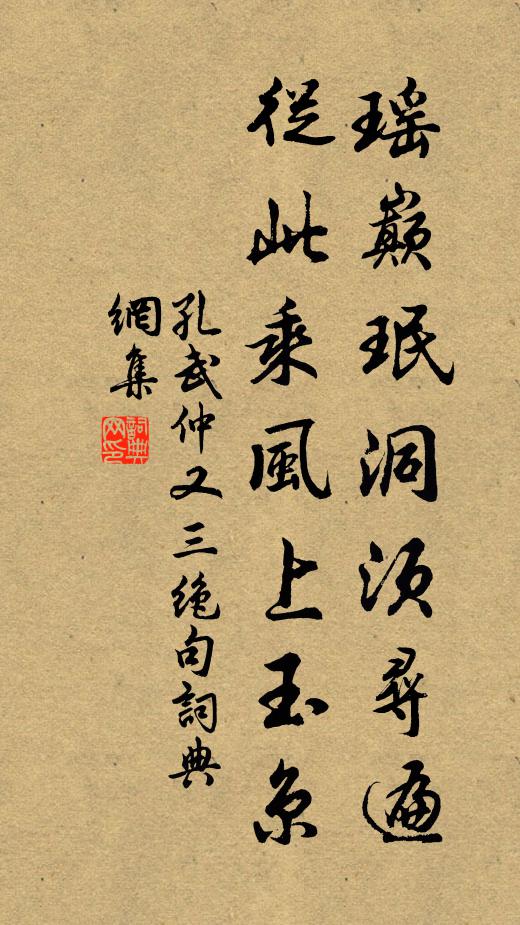 瑶巔珉洞須尋遍
從此乘風上玉京
孔武仲又三绝句詞典
網集
詞典
网印